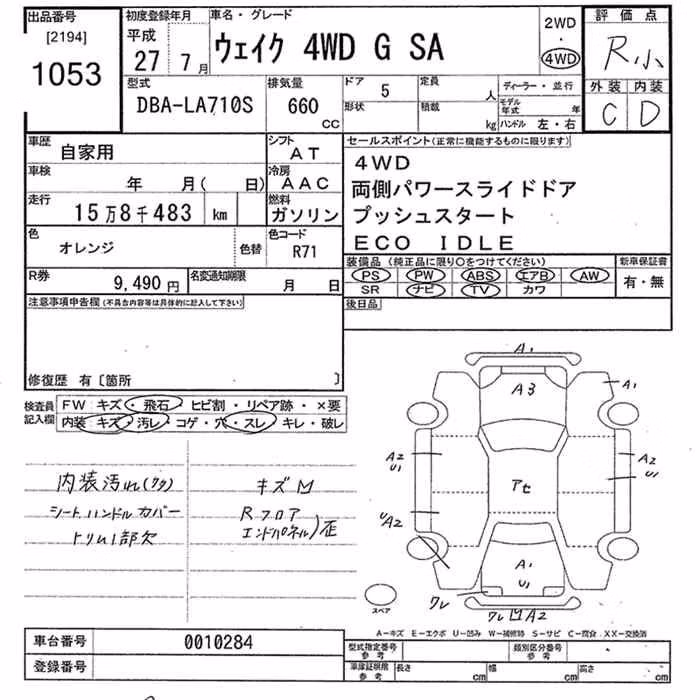 出品番号
[2194]
1053
初度登録年月
平成
27 7月
車名・グレード
ウェイク 4WD G SA
2WD
・
4WD
評価点
R小
外装 内装
C D
型式
DBA-LA710S
排気量
660
cc
ドア 5
定員 人
形状
積載 kg
ディーラー・並行
モデル年式 年
ハンドル 左・右
車歴
自家用
シフト
AT
車検
年 月( 日)
冷房
AAC
走行
15万8千483 km
燃料
ガソリン
色
オレンジ
色替
色コード
R71
R券
9,490円
名変通知期限
月 日
セールスポイント(正常に機能するものに限ります)
4WD
両側パワースライドドア
プッシュスタート
ECO IDLE
装備品(純正品に限り○をつけてください)
PS PW ABS エアB AW
SR ナビ TV カワ
新車保証書
有・無
後日品
注意事項申告欄(不具合内容等は具体的に記入して下さい)
修復歴 有〔箇所 〕
検査員
記入欄
FW キズ・飛石・ヒビ割・リペア跡・×要
内装 キズ・汚レ・コゲ・穴・スレ・キレ・破レ
内装汚れ(クタ)
シートハンドルカバー
トリム1部欠
キズ凹
Rフロア
エンドパネル)歪
A1
A3
A1
A2
U1
A2
U1
アセ
UA2
A1
U1
ワレ
ワレ凹A2
スペア
A-キズ E-エクボ U-凹み W-補修跡 S-サビ C-腐食 XX-交換済
車台番号
0010284
登録番号
型式指定番号
参考
類別区分番号
参考
車庫証明用
参考
長さ cm
幅 cm
高さ cm